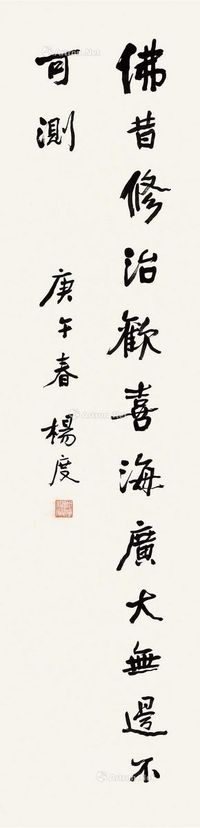 佛昔修治歡喜海廣大無邊不
可測
庚午春楊度